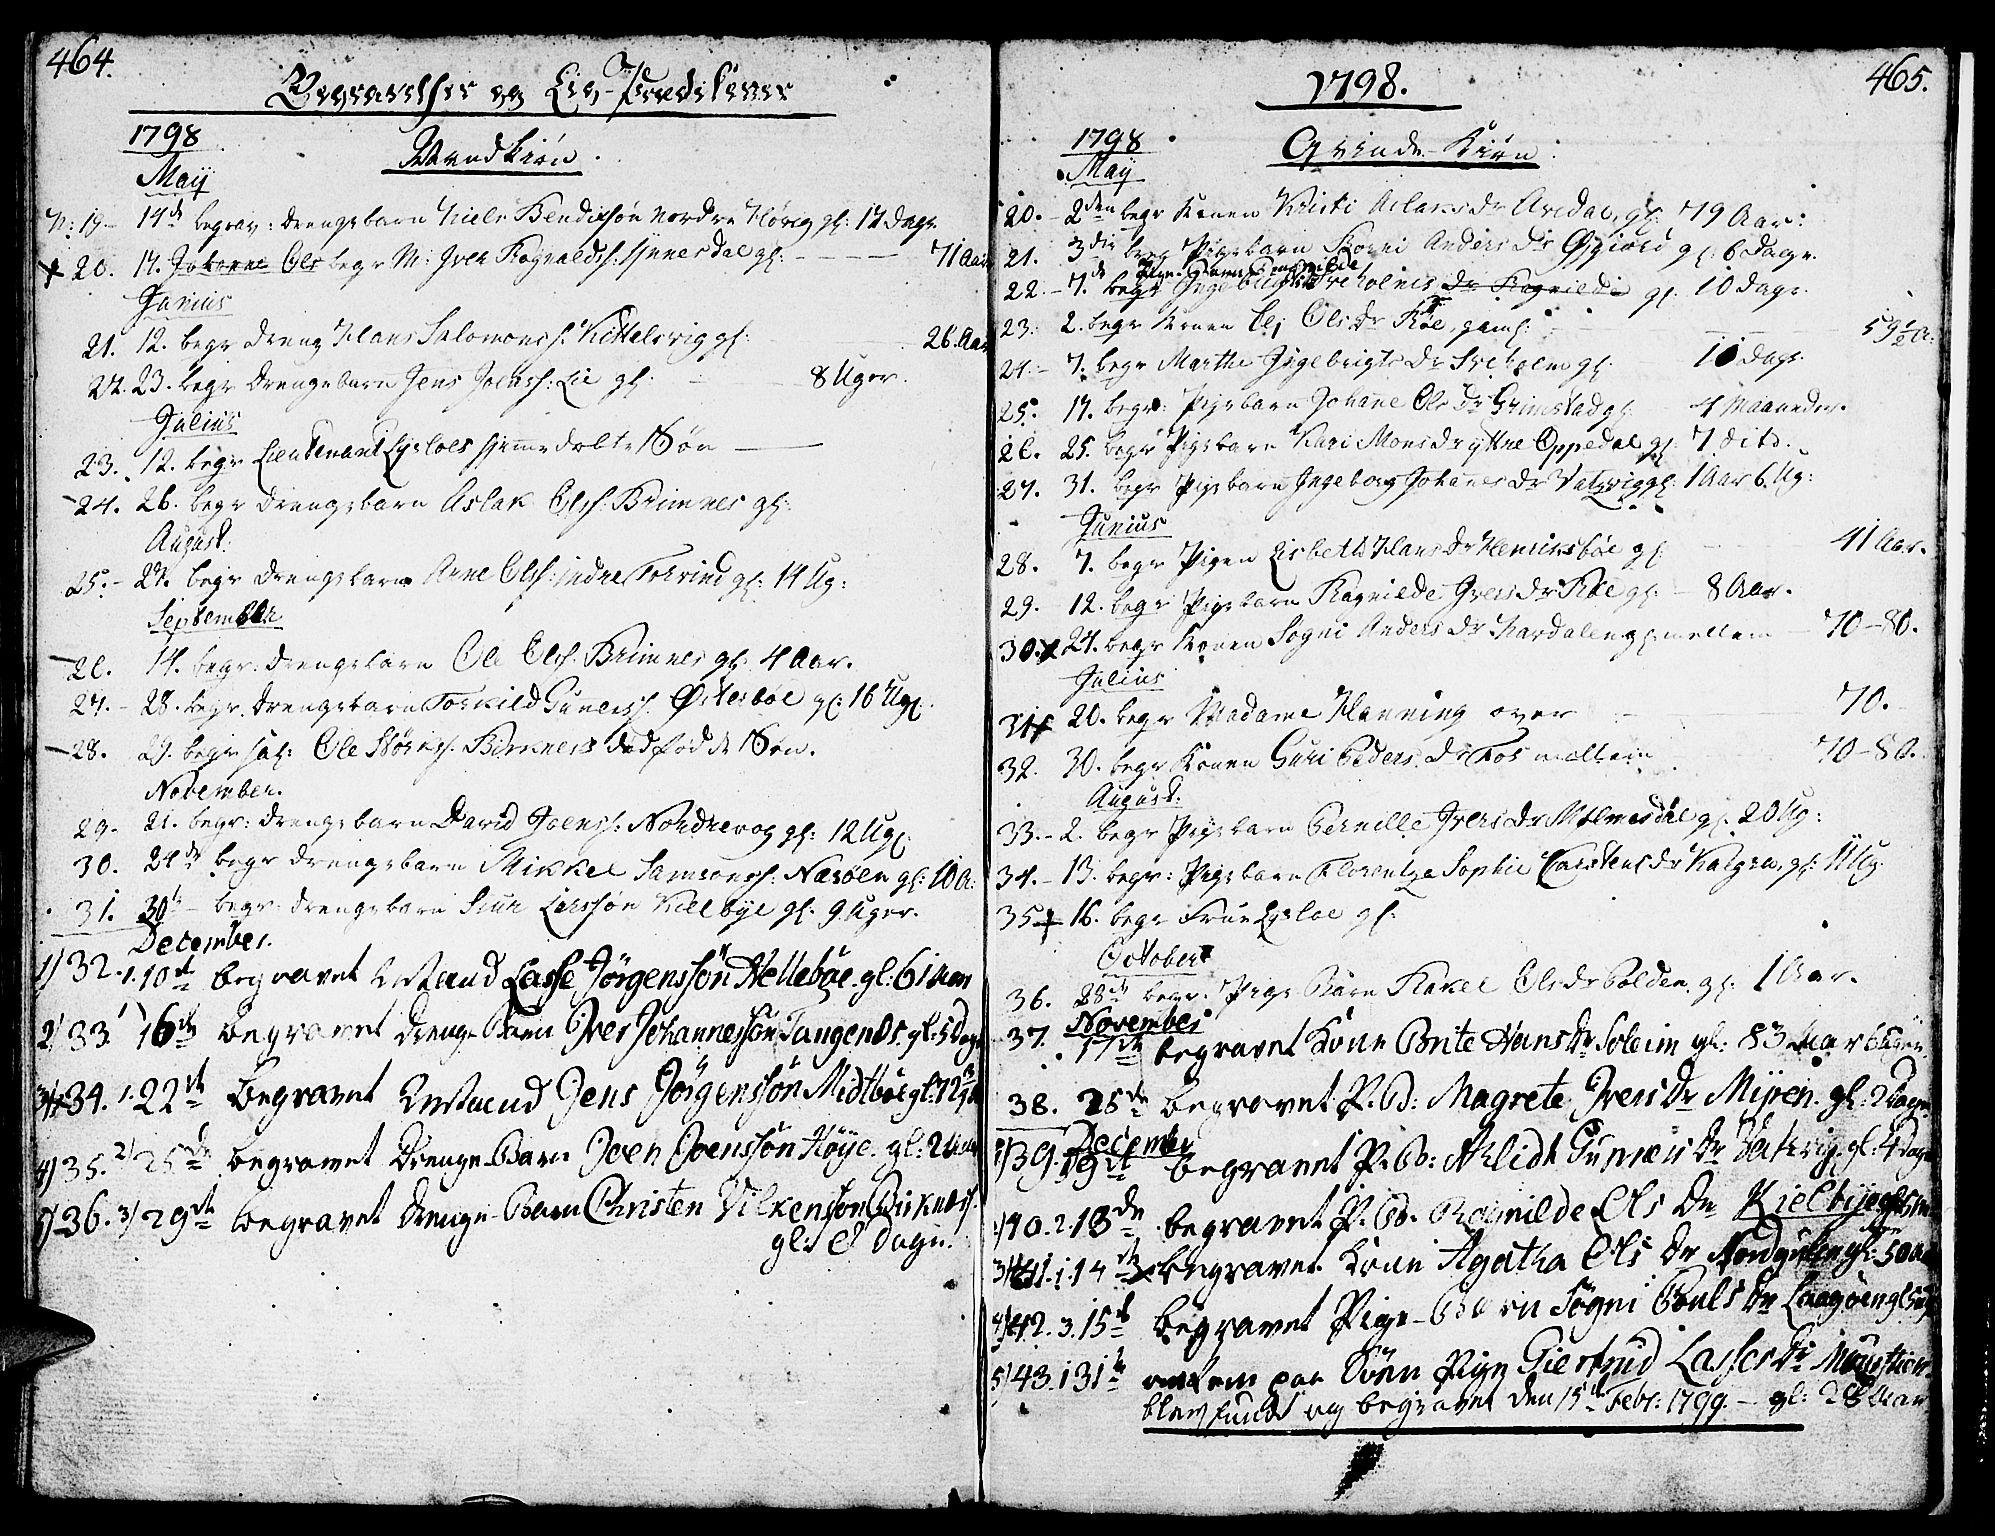 464.
Begravelser og Liig-Prædikener
1798
Mandkiön.
May
N: 19. 14de begrav: Drengebarn Niels Bendixsön Nordre gl: 12 Dage
20. 17. Johanne Ols begr M: Iver Ragnaldss. gl: 71 Aar
Junius
21. 12. begr Dreng Hans Salomonss. Kittelsvig gl: 26. Aar
22. 23. begr Drengebarn Jens Joenss. Lie gl: 8 Uger.
Julius
23. 12. begr Lieutenant Lysloes hiemedøbte Sön
24. 26. begr Drengebarn Aslak Olss. Brimnes gl:
August:
25. 27. begr Drengebarn Arne Olss: indre Torvind gl: 14 Ug:
September
26. 14. begr: Drengebarn Ole Olss. Brimnes gl: 4 Aar.
27. 28. begr. Drengebarn Torkild Gunerss. Østesböe gl: 16 Ug.
28. 29. begr Ole Størkss. Birknes dødfødde Sön.
November.
29. 21. begr: Drengebarn David Joenss: Nordrevog gl: 12 Ug.
30. 24de begr Drengebarn Mikkel Samsonss: Næsöen gl: 10 A:
31. 30te begr: Drengebarn Larssön Kielbye gl: 9 Uger.
December.
1) 32. 1. 10de begravet Lasse Jörgenssön Helleböe. gl: 61 Aar
2) 33. 1) 16de begravet Drenge-Barn Iver Johannessön Tangenes. gl: 5 Dage
3) 34. 1. 22de begravet Jens Jörgenssön Midtböe gl: 72
4) 35. 2) 25de begravet Drenge-Barn Joen Joenssön Höye. gl: 2
5) 36. 3) 29de begravet Drenge-Barn Christen Vilkenssön Birknes.
gl: 8 Dage.
1798.
465.
1798
Qvinde-Kiön
May
20. 2den begr Konen Kristi Aslaksdr Aredal, gl: 79 Aar:
21. 3die begr Pigebarn Ragni Anders dr gl: 6 Dage.
22. 7de begr Ingebrigts Treholmes dr Ragnilde gl: 10 Dage.
23. 2. begr Konen Eli Olsdr Röe, gaml: 59½ A:
24. 7. begr Marthe Ingebrigtsdr Treholm gl: 10 Dage
25. 17. begr: Pigebarn Johanne Olsdr Grimstad gl: 4 Maaneder.
26. 25. begr Pigebarn Kari Monsdr yttre Oppedal gl: 7 dito.
27. 31. begr Pigebarn Ingeborg Johanesdr Vatzvig gl: 1 Aar 6 Ug:
Junius
28. 7. begr Pigen Lisbeth Hansdr Henriksböe gl: 41 Aar.
29. 12. begr Pigebarn Ragnilde Iversdr Röe gl: 8 Aar.
30. 24. begr Konen Sogni Andersdr Hardalen gl: mellem 70-80.
Julius
31 20. begr Madame Hanning over 70.
32. 30. begr Konen Guri Pedersdr Fos mellem 70-80.
August:
33. 2. begr Pigebarn Pernille Iversdr gl: 20 Ug:
34. 13. begr: Pigebarn Florentza Sophie Carstensdr gl: 11 Ug
35 16. begr Frue Lysloe gl.
October
36. 28de begr: Pige Barn Rakel Olsdr Polden. gl: 1 Aar.
November
37. 17de begravet Kone Brite Hansdr Soleim gl: 83 Aar 6 Uger.
38. 25de begravet P. B: Magrete Iversdr Myren. gl: 2 Dage
December
1) 39. 1 9de begravet P. B: Gunners dr Vatsvig. gl: 4 Dage
40. 2. 13de begravet P. B. Ragnilde Ols dr Kielbye
3) 41. 1. 14de begravet Kone Agatha Ols dr gl: 50 Aar
4) 42. 3. 15de begravet Pige-Barn Sögni Pouls dr Laagöen
5) 43. 1 31te omkom paa Söen Pige Giertrud Lasses dr
blev funden og begravet den 15de Febr: 1799. - gl: 28 Aar